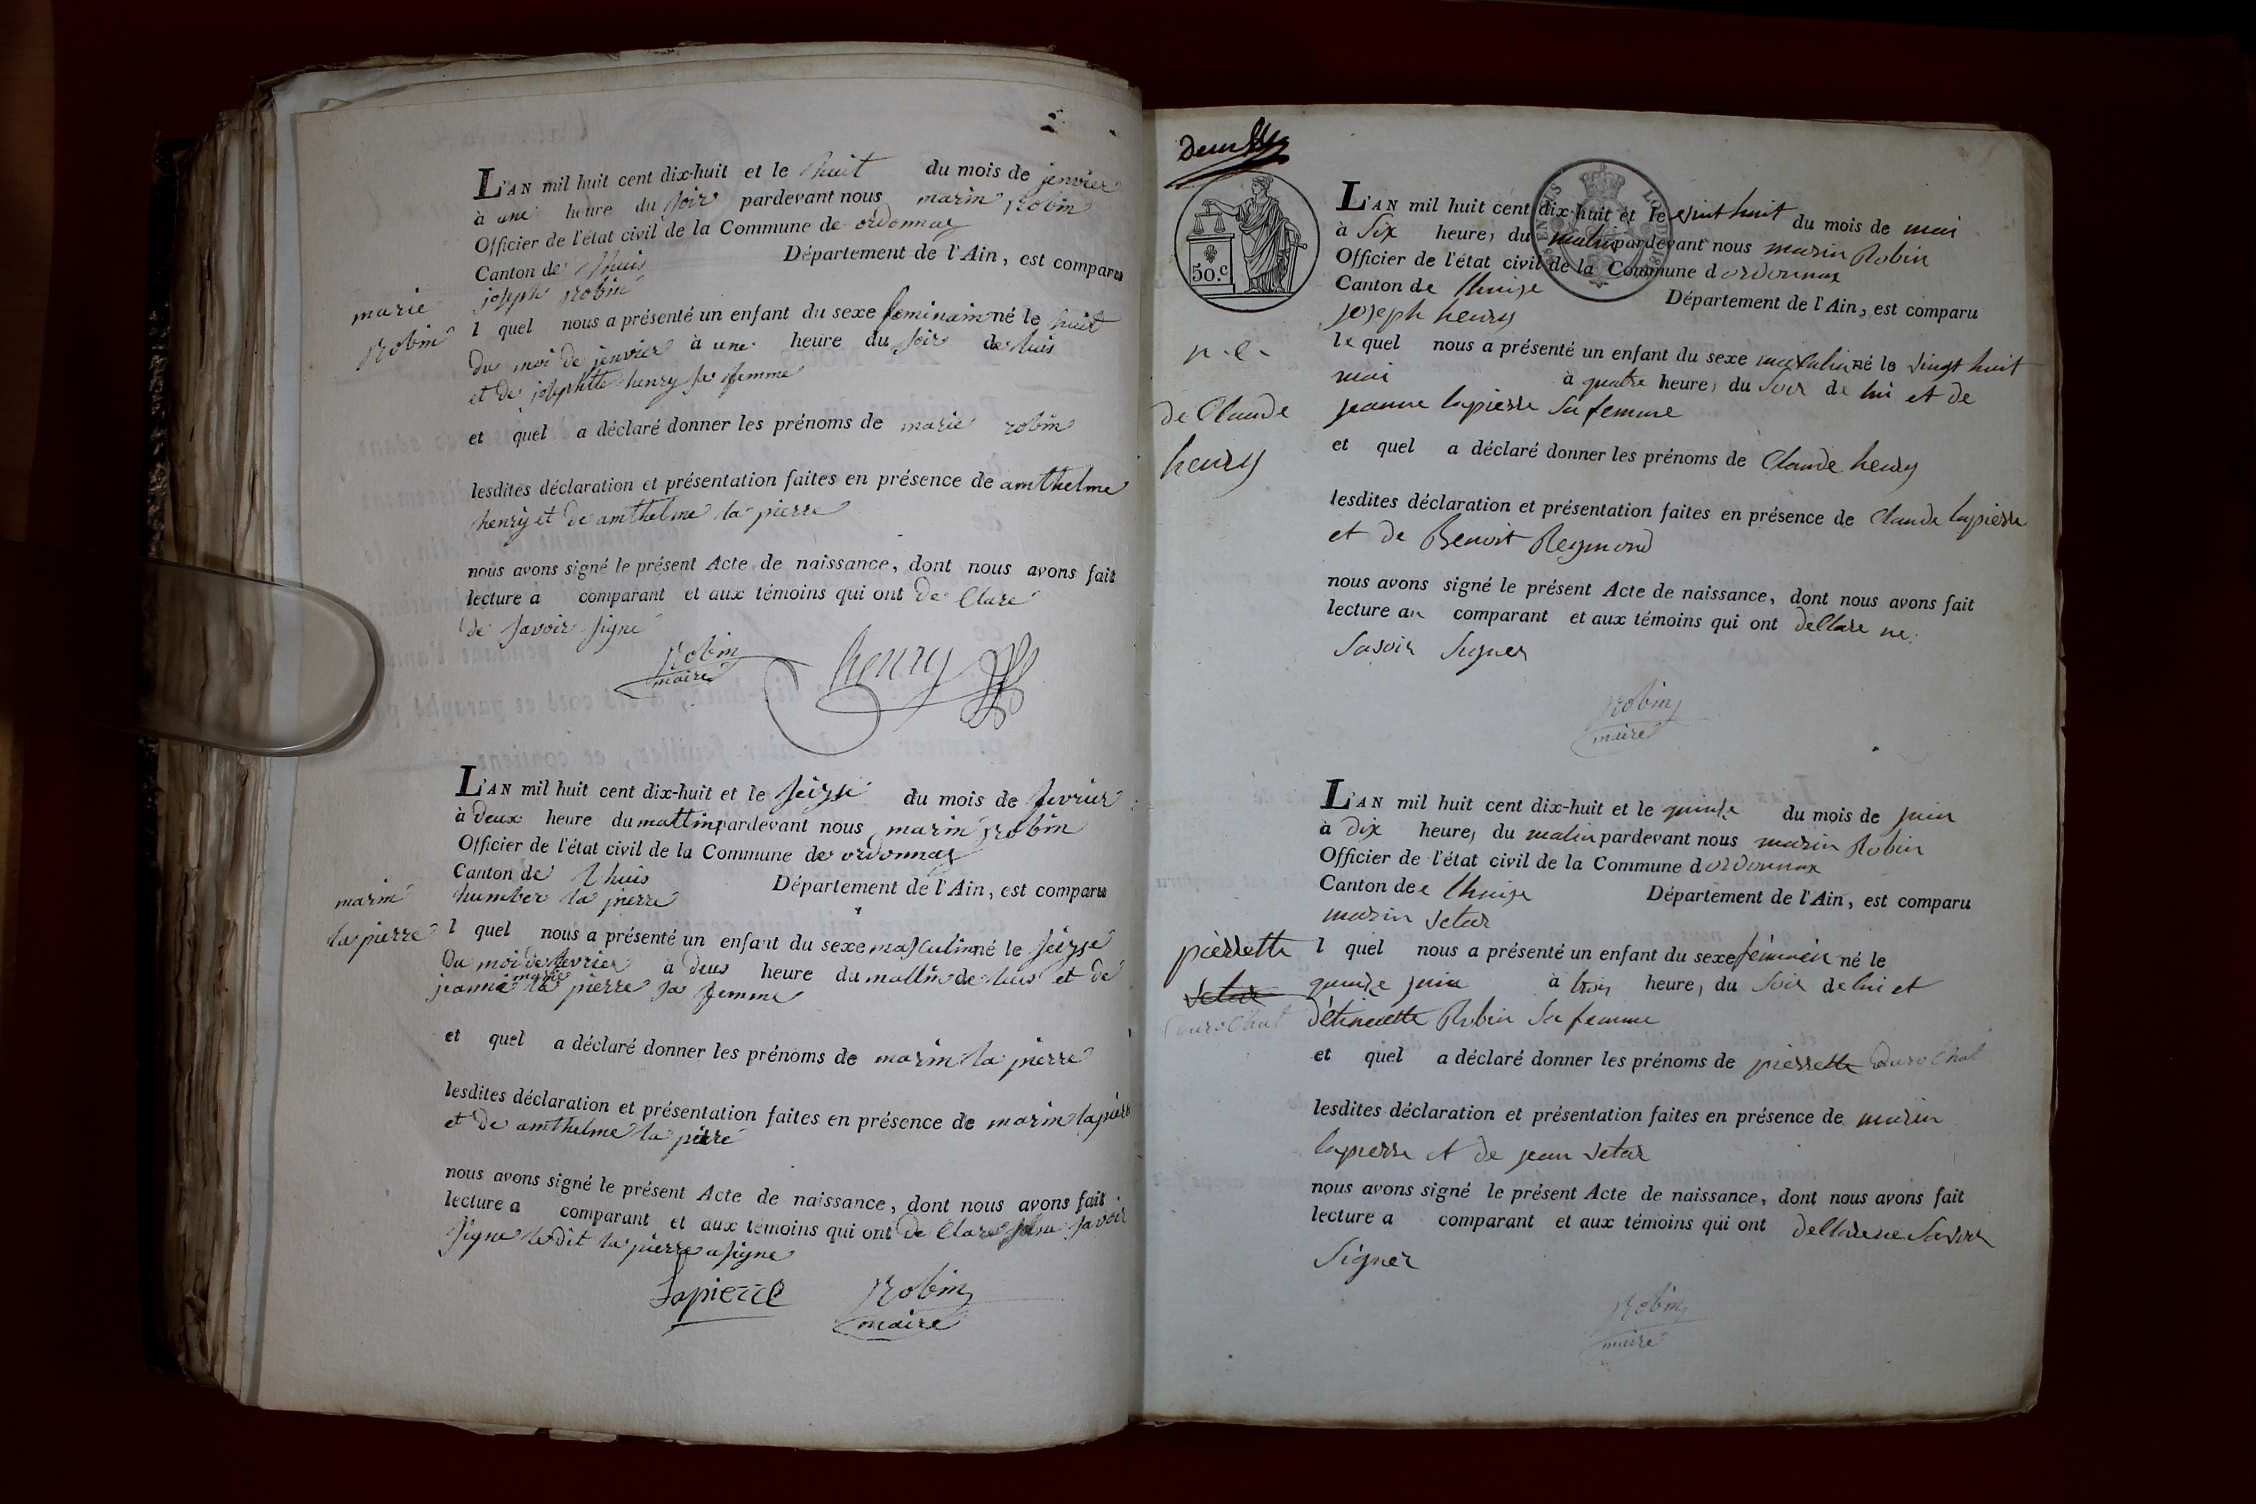 L'AN mil huit cent dix-huit et le huit du mois de jenvier
à une heure du soir pardevant nous marin robin
Officier de l'état civil de la Commune de ordonnas
Canton de lhuis Département de l'Ain, est comparu
joseph robin
marie
robin
l quel nous a présenté un enfant du sexe feminain né le huit
du moi de jenvier à une heure du soir de luis
et de josephtte henry sa femme
et quel a déclaré donner les prénoms de marie robin
lesdites déclaration et présentation faites en présence de amthelme
henry et de amthelme la pierre
nous avons signé le présent Acte de naissance, dont nous avons fait
lecture a comparant et aux témoins qui ont de Clare
de savoir signe
Robin
maire
henry
L'AN mil huit cent dix-huit et le seize du mois de fevrier
à deux heure du mattin pardevant nous marin robin
Officier de l'état civil de la Commune de ordonnas
Canton de lhuis Département de l'Ain, est comparu
humber la pierre
marin
la pierre
l quel nous a présenté un enfant du sexe masculin né le seize
du moi de fevrier à deus heure du mattin de luis et de
marie
jeanne la pierre sa femme
et quel a déclaré donner les prénoms de marin la pierre
lesdites déclaration et présentation faites en présence de marin lapierre
et de amthelme la pierre
nous avons signé le présent Acte de naissance, dont nous avons fait
lecture a comparant et aux témoins qui ont de Clare savoir
signe ledit la pierre a signe
Lapierre
Robin
maire
50.c
L'AN mil huit cent dix-huit et le vint huit du mois de mai
à Six heures du matin pardevant nous marin Robin
Officier de l'état civil de la Commune d ordonnax
Canton de lhuise Département de l'Ain, est comparu
joseph henry
n.e.
de Claude
henry
le quel nous a présenté un enfant du sexe masculin né le vingt huit
mai à quatre heures du soir de lui et de
jeanne lapierre sa femme
et quel a déclaré donner les prénoms de Claude henry
lesdites déclaration et présentation faites en présence de Claude lapierre
et de Benoit Reymond
nous avons signé le présent Acte de naissance, dont nous avons fait
lecture au comparant et aux témoins qui ont dellare ne
savoir Signer
Robin
maire
L'AN mil huit cent dix-huit et le quinse du mois de juin
à dix heures du matin pardevant nous marin Robin
Officier de l'état civil de la Commune d ordonnax
Canton dee lhuise Département de l'Ain, est comparu
marin Setar
pierrette
Setar
durochat
l quel nous a présenté un enfant du sexe féminin né le
quinse juin à trois heures du soir de lui et
d'étiennette Robin sa femme
et quel a déclaré donner les prénoms de pierrette durochat
lesdites déclaration et présentation faites en présence de marin
lapierre et de jean Setar
nous avons signé le présent Acte de naissance, dont nous avons fait
lecture a comparant et aux témoins qui ont dellare ne Savoir
Signer
Robin
maire